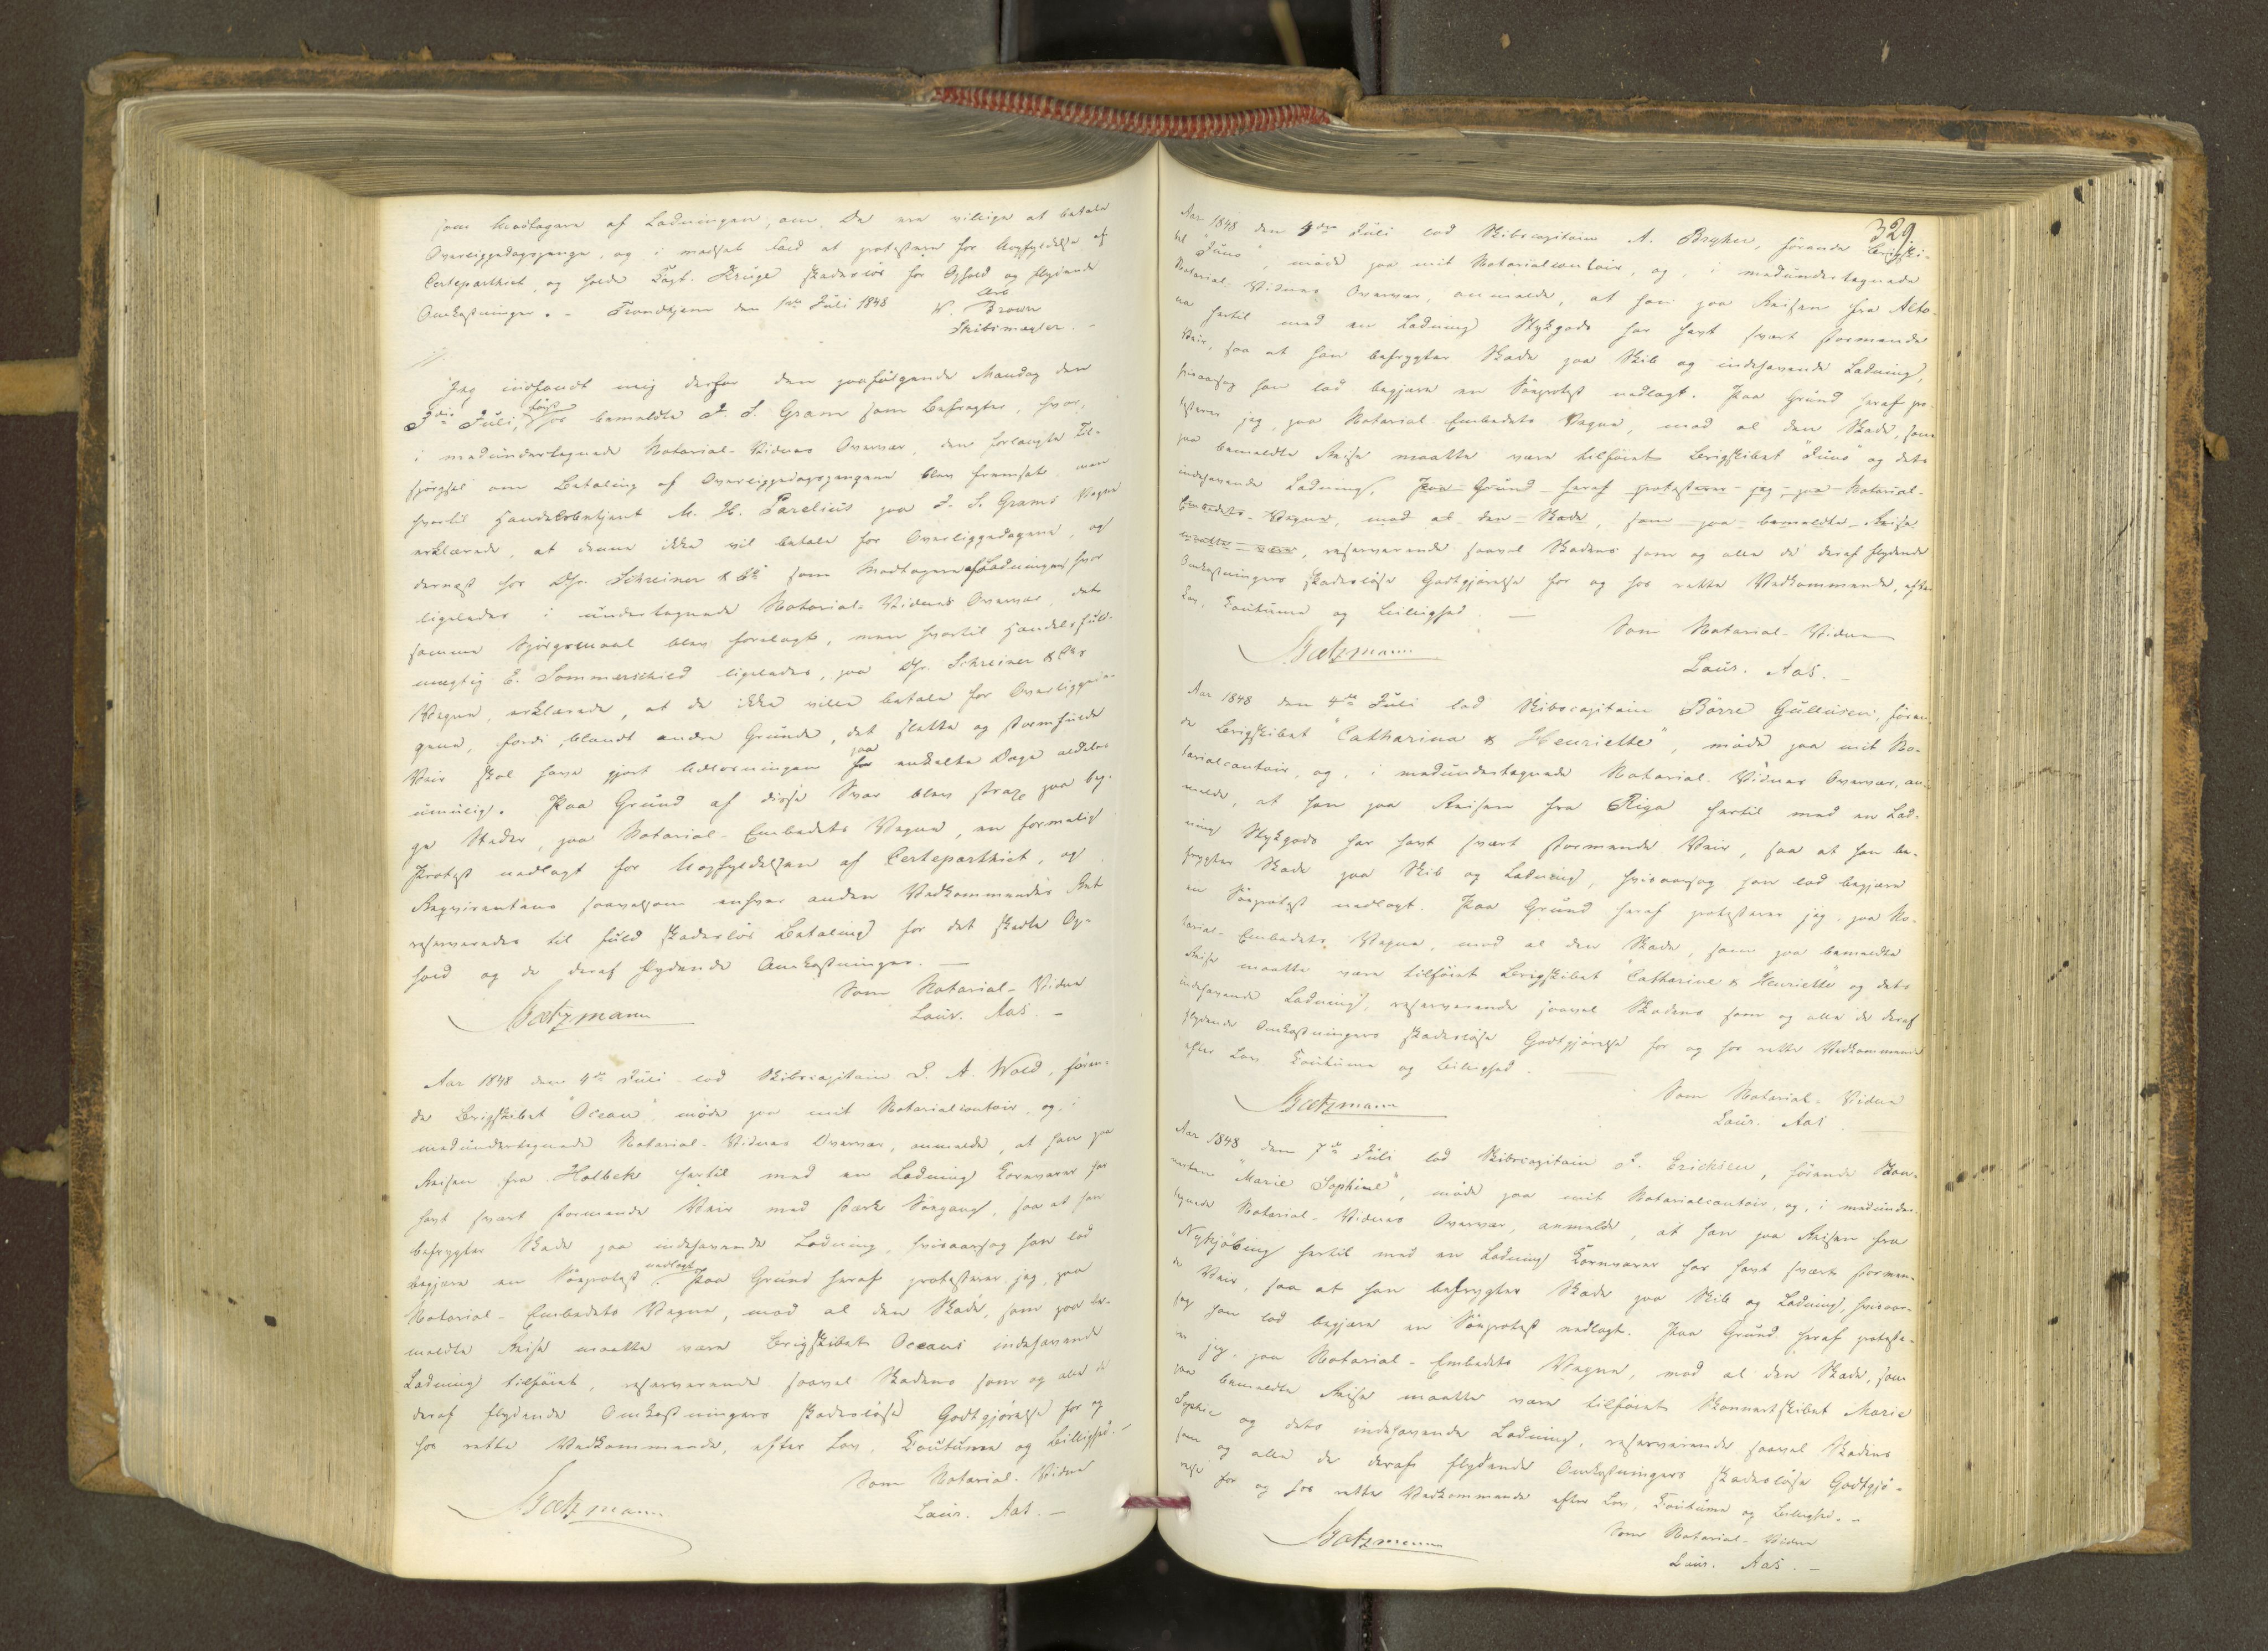 som Modtagere af Ladningen, om De ere villige at betale
Overliggedagspenge, og i modsat Fald at protestere for Uopfyldelse af
Certepartiet, og holde Capt. Krüge skadeslös for Ophold og flydende
Omkostninger. - Trondhjem den 1ste Juli 1848
Arb
W. Brown
Skibsmægler. -
Jeg indfandt mig derfor den paafölgende Mandag den
3die Juli, först hos bemeldte J. S. Gram som Befragter, hvor,
i medundertegnede Notarial-Vidnes Overvær, den forlangte Fore-
spörgsel om Betaling af Overliggedagspengene blev fremsat, men
hvortil Handelsbetjent M. H. Parelius paa J. S. Grams Vegne
erklærede, at denne ikke vil betale for Overliggedagene, og
dernæst hos DHr. Schreiner & Co som Modtagere af Ladningen, hvor
ligeledes i undertegnede Notarial-Vidnes Overvær, det
samme Spörgsmaal blev forelagt, men hvortil Handelsfuld-
mægtig E. Sommerschild ligeledes, paa DHr. Schreiner & Cos
Vegne, erklærede, at de ikke ville betale for Overliggeda-
gene, fordi, blandt andre Grunde, det slette og stormfulde
Veir skal have gjort Udlosningen paa enkelte Dage aldeles
umulig. Paa Grund af disse Svar blev strax paa beg-
ge Steder, paa Notarial-Embedets Vegne, en formelig
Protest nedlagt for Uopfyldelsen af Certepartiet, og
Reqvirentens saavelsom enhver anden Vedkommendes Ret
reserveredes til fuld skadeslös Betaling for det skadte Op-
hold og de deraf flydende Omkostninger. -
Som Notarial-Vidne
Baetzmann
Laur. Aas. -
Aar 1848 den 4de Juli lod Skibscapitain L. A. Wold, fören-
de Brigskibet "Ocean", möde paa mit Notarialcontoir, og, i
medundertegnede Notarial-Vidnes Overvær, anmelde, at han paa
Reisen fra Holbek hertil med en Ladning Kornvarer har
havt svært stormende Veir med stærk Söegang, saa at han
befrygter Skade paa indehavende Ladning, hvisaarsag han lod
begjære en Söeprotest nedlagt. Paa Grund heraf protesterer jeg, paa
Notarial-Embedets Vegne, mod al den Skade, som paa be-
meldte Reise maatte være Brigskibet Oceans indehavende
Ladning tilföiet, reserverende saavel Skadens som og alle de
deraf flydende Omkostningers skadeslöse Godtgjörelse for og
hos rette Vedkommende, efter Lov, Coutume og Billighed. -
Som Notarial-Vidne
Baetzmann
Laur. Aas. -
329
Aar 1848 den 4de Juli lod Skibscapitain A. Bryher, förende Brigski-
bet "Juno", möde paa mit Notarialcontoir, og i medundertegnede
Notarial-Vidnes Overvær, anmelde, at han paa Reisen fra Alto-
na hertil med en Ladning Stykgods har havt svært stormende
Veir, saa at han befrygter Skade paa Skib og indehavende Ladning,
hvisaarsag han lod begjære en Söeprotest nedlagt. Paa Grund heraf pro-
testerer jeg, paa Notarial-Embedets Vegne, mod al den Skade, som
paa bemeldte Reise maatte være tilföiet Brigskibet "Juno" og dets
indehavende Ladning, Paa Grund heraf protesterer jeg, paa Notarial-
Embedets Vegne, mod al den Skade, som paa bemeldte Reise
maatte være, reserverende saavel Skadens som og alle de deraf flydende
Omkostningers skadeslöse Godtgjörelse for og hos rette Vedkommende, efter
Lov, Coutume og Billighed. -
Som Notarial-Vidne
Baetzmann
Laur. Aas. -
Aar 1848 den 4de Juli lod Skibscapitain Börre Gullusen, fören-
de Brigskibet "Catharina & Henriette", möde paa mit No-
tarialcontoir, og, i medundertegnede Notarial-Vidnes Overvær, an-
melde, at han paa Reisen fra Riga hertil med en Lad-
ning Stykgods har havt svært stormende Veir, saa at han be-
frygter Skade paa Skib og Ladning, hvisaarsag han lod begjære
en Söeprotest nedlagt. Paa Grund heraf protesterer jeg, paa No-
tarial-Embedets Vegne, mod al den Skade, som paa bemeldte
Reise maatte være tilföiet Brigskibet "Catharine & Henriette" og dets
indehavende Ladning, reserverende saavel Skadens som og alle de deraf
flydende Omkostningers skadeslöse Godtgjörelse for og hos rette Vedkommende
efter Lov Coutume og Billighed. -
Som Notarial-Vidne
Baetzmann
Laur. Aas
Aar 1848 den 7de Juli lod Skibscapitain J. Ericksen, förende Skon-
nerten "Marie Sophie", möde paa mit Notarialcontoir, og, i medunder-
tegnede Notarial-Vidnes Overvær, anmelde, at han paa Reisen fra
Nykjöbing hertil med en Ladning Kornvarer har havt svært stormen-
de Veir, saa at han befrygter Skade paa Skib og Ladning, hvisaar-
sag han lod begjære en Söeprotest nedlagt. Paa Grund heraf proteste-
rer jeg, paa Notarial-Embedets Vegne, mod al den Skade, som
paa bemeldte Reise maatte være tilföiet Skonnertskibet Marie
Sophie og dets indehavende Ladning, reserverende saavel Skadens
som og alle de deraf flydende Omkostningers skadeslöse Godtgjö-
relse for og hos rette Vedkommende efter Lov, Coutume og Billighed. -
Som Notarial-Vidne
Baetzmann
Laur. Aas. -